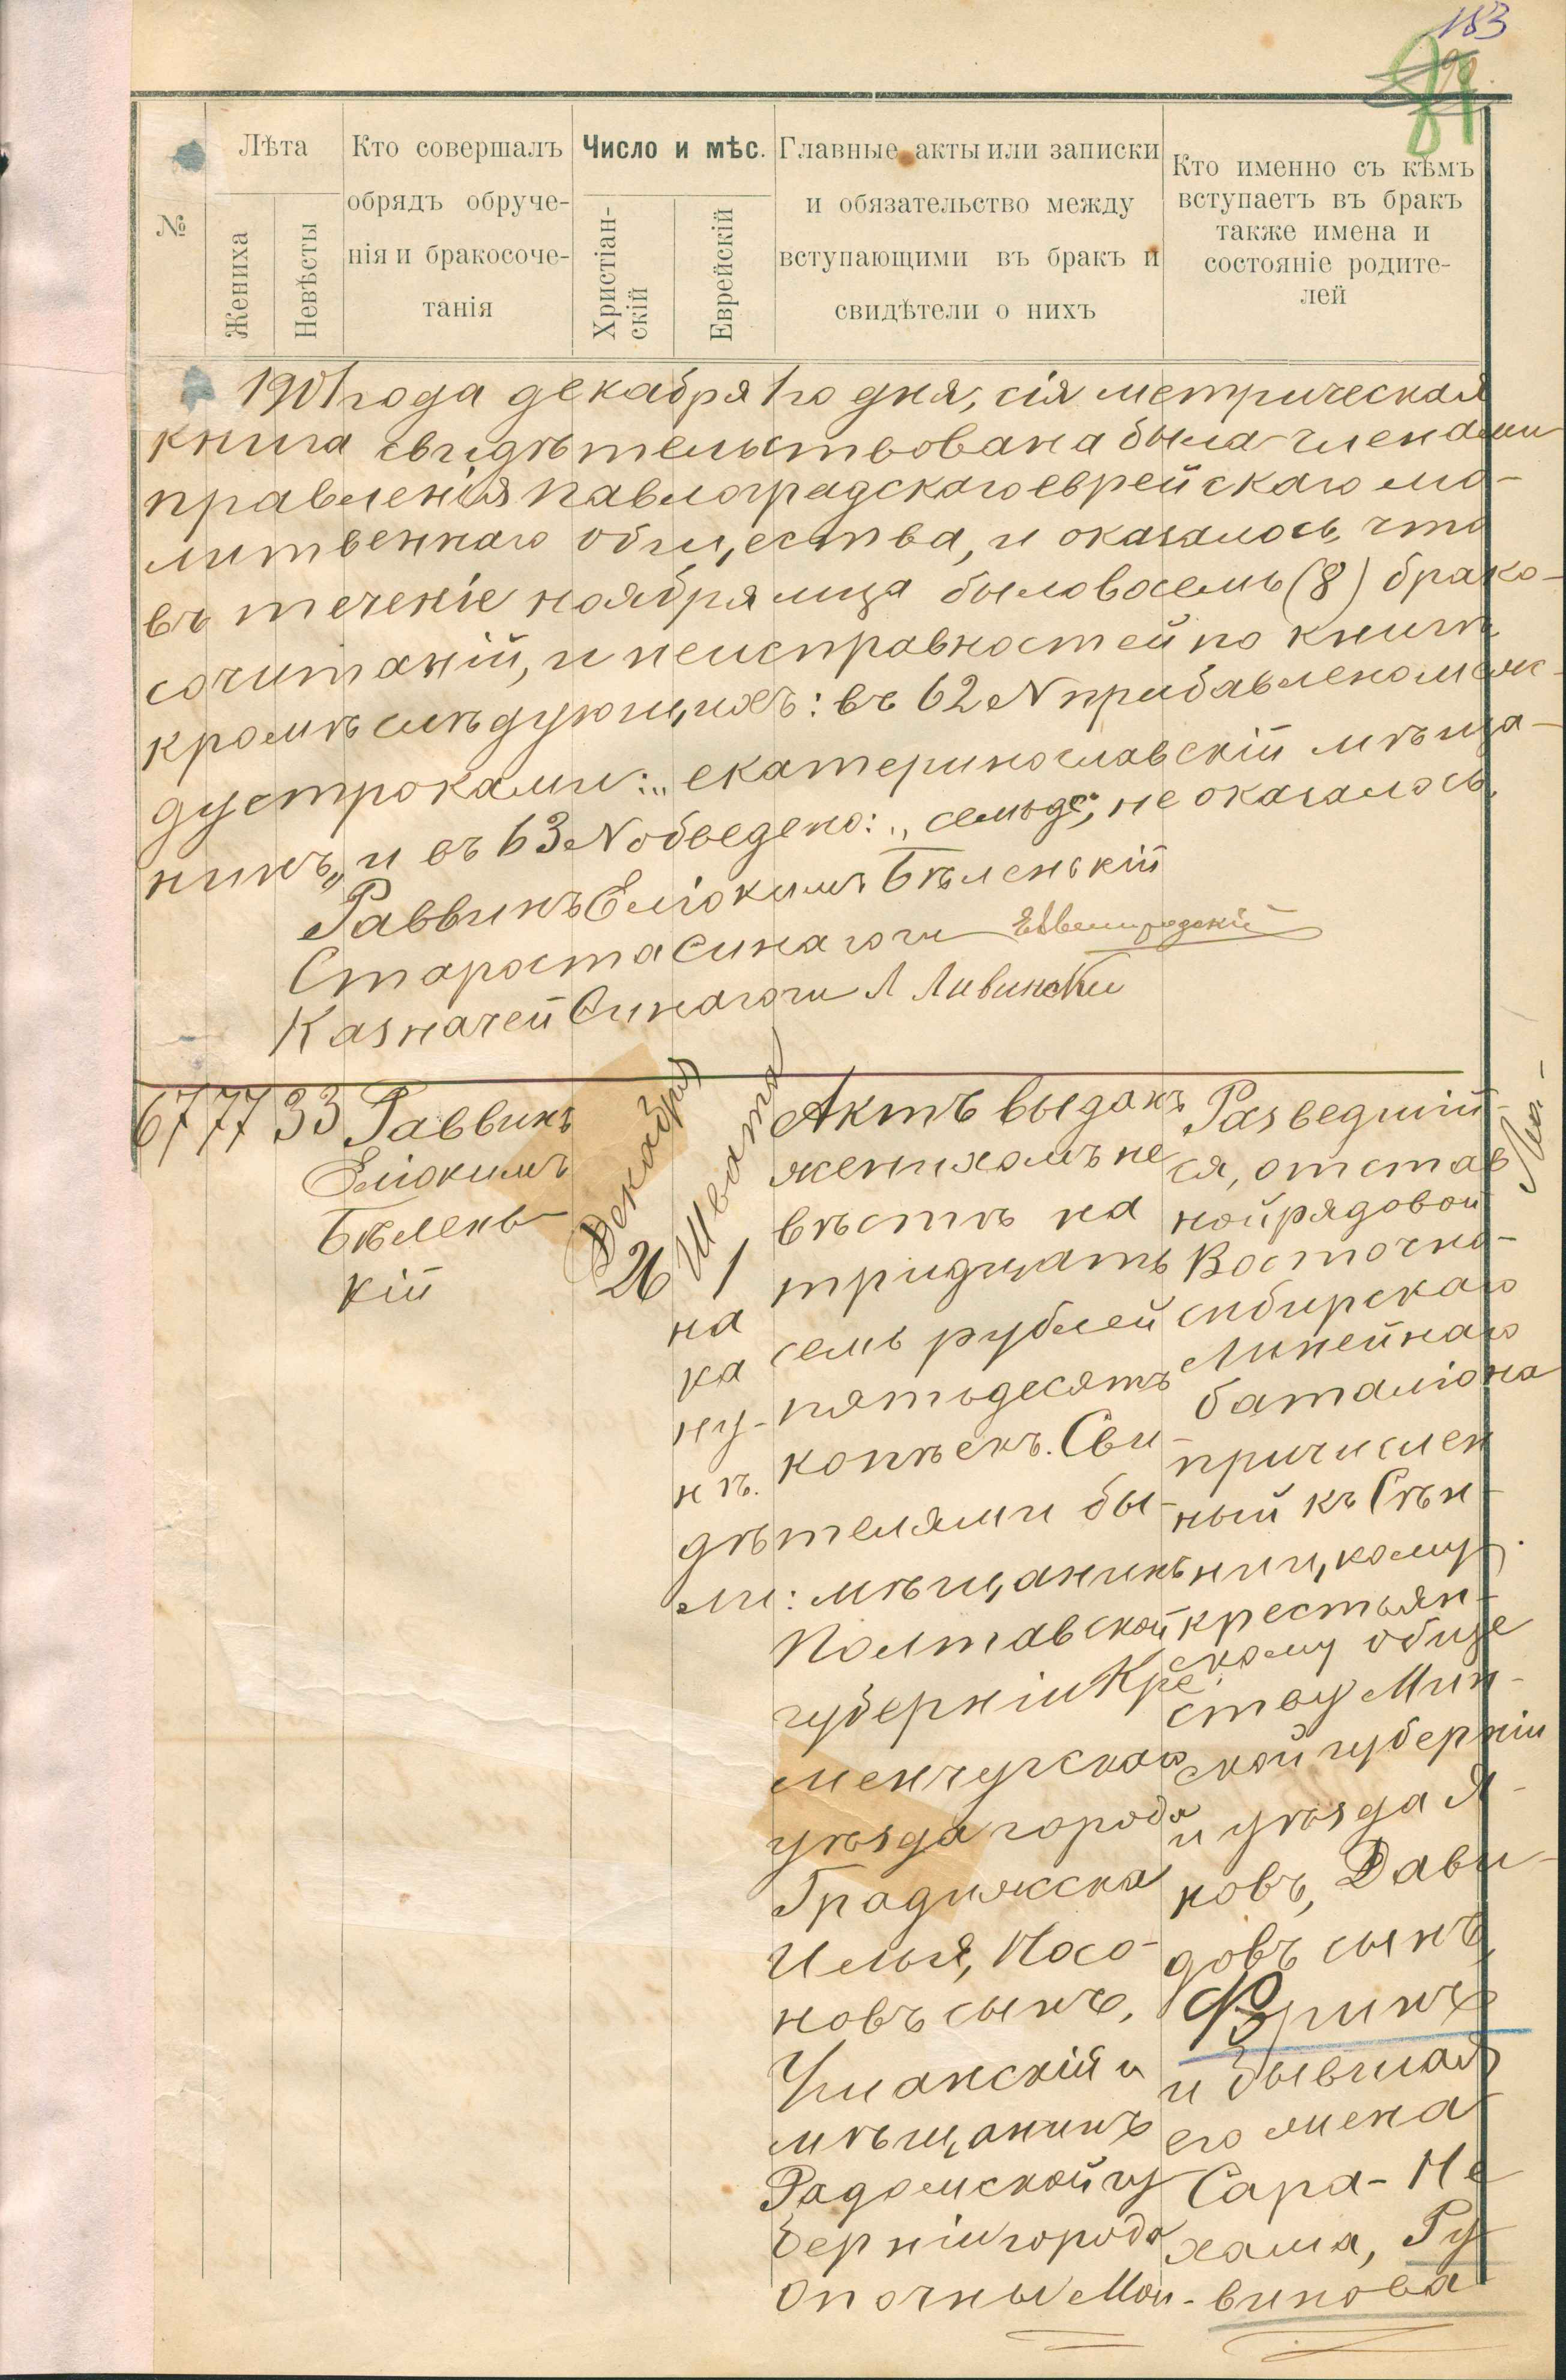 183
№
Лѣта
Жениха
Невѣсты
Кто совершалъ
обрядъ обруче-
нія и бракосоче-
танія
Число и мѣс.
Христіан-
скій
Еврейскій
Главные акты или записки
и обязательство между
вступающими въ бракъ и
свидѣтели о нихъ
Кто именно съ кѣмъ
вступаетъ въ бракъ
также имена и
состояніе родите-
лей
1901 года декабря 1го дня, сія метрическая
книга свидѣтельствована была членами
правленія Павлоградскаго еврейскаго мо-
литвеннаго общества, и оказалось, что
въ теченіе ноября мца было восемь (8) брако-
сочитаній, и неисправностей по книгѣ
кромѣ слѣдующихъ: въ 62 N прибавлено меж-
ду строками: „екатеринославскій мѣща-
нинъ„ и въ 63 N обведено: „семьде", не оказалось.
Раввинъ Еліокимъ Бѣленькій
Староста Синагоги
Казначей Синагоги Л Ливинскій
67
77
33
Раввинъ
Еліокимъ
Бѣлень-
кій
Декабря
26
Швата
1
на
ка
ну-
нѣ.
Актъ выданъ
женихомъ не
вѣстѣ на
тридцать
семь рублей
пятьдесятъ
копѣекъ. Сви-
дѣтелями бы-
ли: мѣщанинъ
Полтавской
губерніи Кре
менчугскаго
уѣзда города
Градижска
Илья, Носо-
новъ сынъ,
Уманскій и
мѣщанинъ
Радомской гу
берніи города
Опочны Мои-
Разведшій-
ся, отстав
ной рядовой
Восточно-
сибирскаго
Линейнаго
баталіона
причислен
ный къ Сѣн-
ницкому
крестьян-
скому обще
ству Мин-
ской губерніи
и уѣзда Я-
ковъ, Дави-
довъ сынъ,
Фринъ
и бывшая
его жена
Сара-Не
хама, Ру
винова